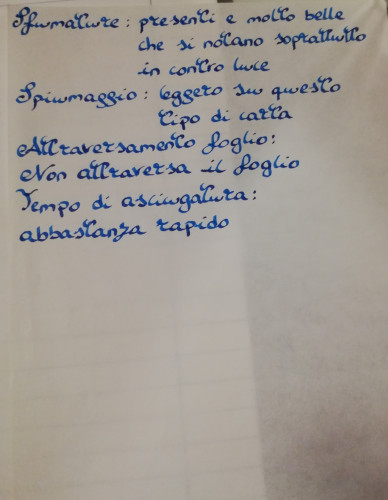 Sfumature: presenti e molto belle
che si notano soprattutto
in contro luce
Spiumaggio: leggero su questo
tipo di carta
Attraversamento foglio:
Non attraversa il foglio
Tempo di asciugatura:
abbastanza rapido